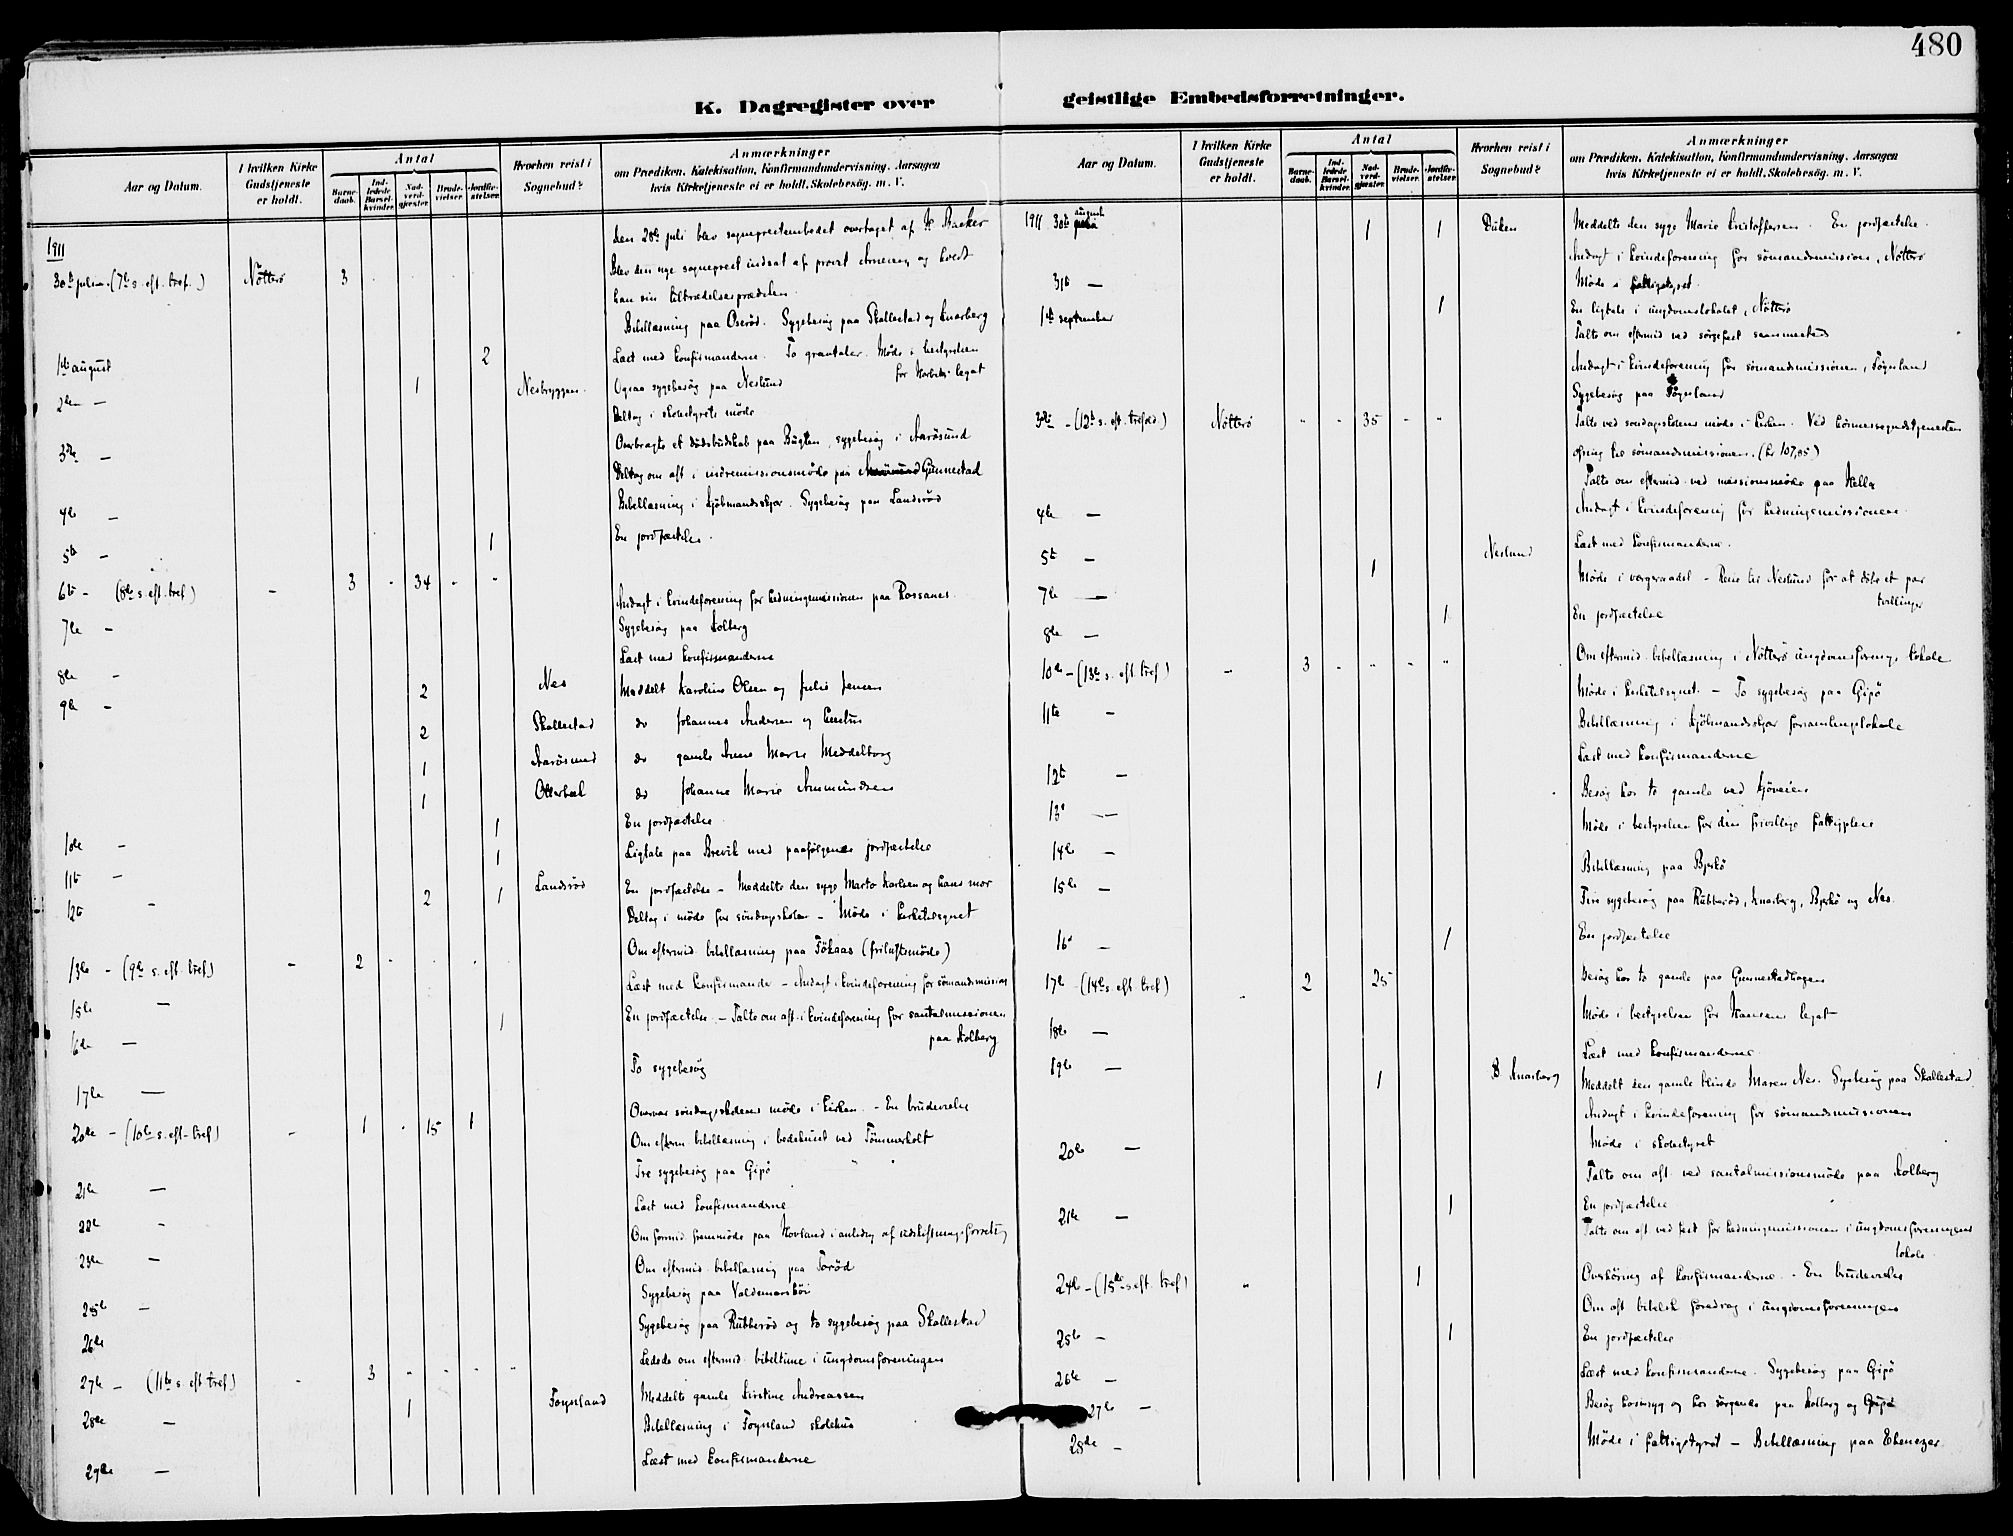 480
K. Dagregister over geistlige Embedsforretninger.
Aar og Datum.
I hvilken Kirke Gudstjeneste er holdt.
Antal
Barne-daab.
Ind-ledede Barsel-kvinder.
Nad-verd-gjæster.
Brude-vielser.
Jordfæ-stelser.
Hvorhen reist i Sognebud?
Anmærkninger
om Prædiken, Katekisation, Konfirmandundervisning, Aarsagen
hvis Kirketjeneste ei er holdt, Skolebesøg, m. V.
1911
den 28de juli blev sogneprestembedet overtaget af H. Backer
30te julem. (7de s. eft. tref.) Nötterö 3 Blev den nye sogneprest indsat af provst
og holdt
han sin tiltrædelsesprædiken
Bibellæsning paa Oseröd. Sygebesög paa Skallestad og Knarberg
1ste august 2 Læst med konfirmanderne. To gravtaler. Möde i bestyrelsen
for legat
2den — 1 Nesbryggen Ogsaa sygebesög paa Neslund
Deltog i skolestyrets möde
3die — Overbragte et dödsbudskab paa Bugten, sygebesög i Aarösund
Deltog om aft. i indremissionsmöde paa Gunnestad
4de — Bibellæsning i Kjöbmandsskjær. Sygebesög paa Landsröd
5te — 1 En jordfæstelse.
6te — (8de s. eft. tref) - 3 - 34 - -
7de — Andagt i kvindeforening for hedningemissionen paa Rossanes.
Sygebesög paa Kolberg
8de — Læst med konfirmanderne
9de — 2 Nes Meddelt Karoline Olsen og Julie Jensen
2 Skallestad do Johannes Andersen og hustru
1 Aarösund do gamle Anne Marie Meddelborg
1 Otterbæk do Johanne Marie Ammundsen
1 En jordfæstelse
10de — 1 Ligtale paa Brevik med paafölgende jordfæstelse
11te —
12te — 2 1 Landsröd En jordfæstelse – Meddelte den syge Marta Karlsen og hans mor
Deltog i möde for söndagsskolen – Möde i kirketilsynet
Om eftermid. bibellæsning paa Tökaas (friluftsmöde)
13de — (9de s. eft. tref.) - 2 -
15de — Læst med konfirmande – Andagt i kvindeforening for sömandsmission
16de — 1 En jordfæstelse – Talte om aft. i kvindeforening for santalmissionen
paa Kolberg
17de — To sygebesög
20de — (10de s. eft. tref) - 1 - 15 1 Overvar söndagsskolens möde i kirken. – En brudevielse
Om efterm. bibellæsning i bedehuset ved Tömmerholt
21de — Tre sygebesög paa Gipö
22de — Læst med konfirmanderne
23de — Om formid. fremmöde paa Hovland i anledng af udskiftningsforretng
Om eftermid. bibellæsning paa Toröd
25de — Sygebesög paa Valdemarsböi
26de Sygebesög paa Rubberöd og to sygebesög paa Skallestad
27de — (11te s. eft. tref) - 3 - - - - Ledede om eftermid. bibeltime i ungdomsforeningen
28de — 1 Föynland Meddelte gamle Kirstine Andreassen
Bibellæsning i Föynland skolehus
29de — Læst med konfirmanderne
Aar og Datum.
I hvilken Kirke Gudstjeneste er holdt.
Antal
Barne-daab.
Ind-ledede Barsel-kvinder.
Nad-verd-gjæster.
Brude-vielser.
Jordfæ-stelser.
Hvorhen reist i Sognebud?
Anmærkninger
om Prædiken, Katekisation, Konfirmandundervisning, Aarsagen
hvis Kirketjeneste ei er holdt, Skolebesøg, m. V.
1911 30te august 1 1 Duken Meddelte den syge Marie Kristoffersen. En jordfæstelse.
Andagt i kvindeforening for sömandsmission, Nötterö
31te — Möde i fattigstyret.
1ste september 1 En ligtale i ungdomslokalet, Nötterö
Talte om eftermid ved sörgefest sammesteds
Andagt i kvindeforening for sömandsmissionen, Föynland
Sygebesög paa Föynland
3die — (12te s. eft. trefold.) Nötterö - - 35 - - Talte ved söndagsskolens möde i kirken. Ved gudstjenesten
ofring til sömandsmissionen. (kr 107,85)
Talte om eftermid. ved missionsmöde paa Hella
4de — Andagt i kvindeforening for hedningemissionen.
5te — 1 Neslund Læst med konfirmanderne.
Möde i vergeraadet – Reise til Neslund for at döbe et par
tvillinger
7de — 1 En jordfæstelse
8de —
10de — (13de s. eft. tref) - 3 - - - - Om eftermid. bibellæsning i Nötterö ungdomsforengs lokale
11te — Möde i kirketilsynet. – To sygebesög paa Gipö
Bibellæsning i Kjöbmandsskjær forsamlingslokale
12te — Læst med konfirmanderne
13de — Besög hos to gamle ved Kjöveien
14de — Möde i bestyrelsen for den frivillige fattigpleie
15de — Bibellæsning paa Bjerkö
Fire sygebesög paa Rubberöd, Knarberg, Bjerkö og Nes.
16de — 1 En jordfæstelse
17de — (14de s. eft. tref) - 2 25 Besög hos to gamle paa Gunnestadhagen
18de — Möde i bestyrelsen for Hansens legat
19de — 1 Knarberg Læst med konfirmanderne
Meddelt den gamle blinde Maren Nes. Sygebesög paa Skallestad
Andagt i kvindeforening for sömandsmissionen
20de — Möde i skolestyret
Talte om aft. ved santalmissionsmöde paa Kolberg
21de — 1 En jordfæstelse
Talte om aft. ved fest for hedningemissionen i ungdomsforeningens
lokale.
24de — (15de s. eft. tref) - 1 Overhöring af konfirmanderne. – En brudevielse
Om aft bibelsk foredrag i ungdomsforeningen
25de — 1 En jordfæstelse
26de — Læst med konfirmanderne. Sygebesög paa Gipö
27de — Besög hos syg og hos sörgende paa Kolberg og Gipö
28de — Möde i fattigstyret – Bibellæsning paa Ebenezer.